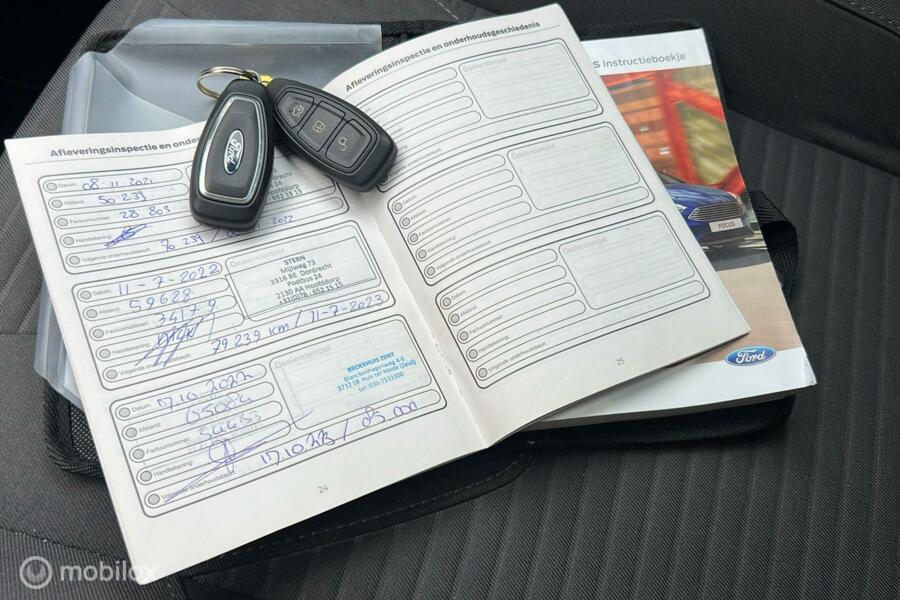 Afleveringsinspectie en onder
Datum: 08-11-2021
Afstand: 50 239
Factuurnummer: 28 803
Handtekening:
Volgende onderhoudsbeurt: 70 239 / 2022
Hoofddorp
Datum: 11-7-2022
Afstand: 59628
Factuurnummer: 34179
Handtekening:
Volgende onderhoudsbeurt: 79 239 km / 11-7-2023
Dealerstempel
STERN
Mijlweg 73
3316 BE Dordrecht
Postbus 24
2130 AA Hoofddorp
+31(0)78 - 652 15 15
Datum: 17.10.2022
Afstand:
Factuurnummer:
Handtekening:
Volgende onderhoudsbeurt: 17.10.2023 / 85.000
Dealerstempel
BROEKHUIS ZEIST
Blanckenhagenweg 4-6
3712 DE Huis ter Heide (Zeist)
tel: 030-7533300
24
Afleveringsinspectie en onderhoudsgeschiedenis
Dealerstempel
Datum:
Afstand:
Factuurnummer:
Handtekening:
Volgende onderhoudsbeurt:
Dealerstempel
Datum:
Afstand:
Factuurnummer:
Handtekening:
Volgende onderhoudsbeurt:
Dealerstempel
25
Ford
S Instructieboekje
FOCUS
Ford
mobilox